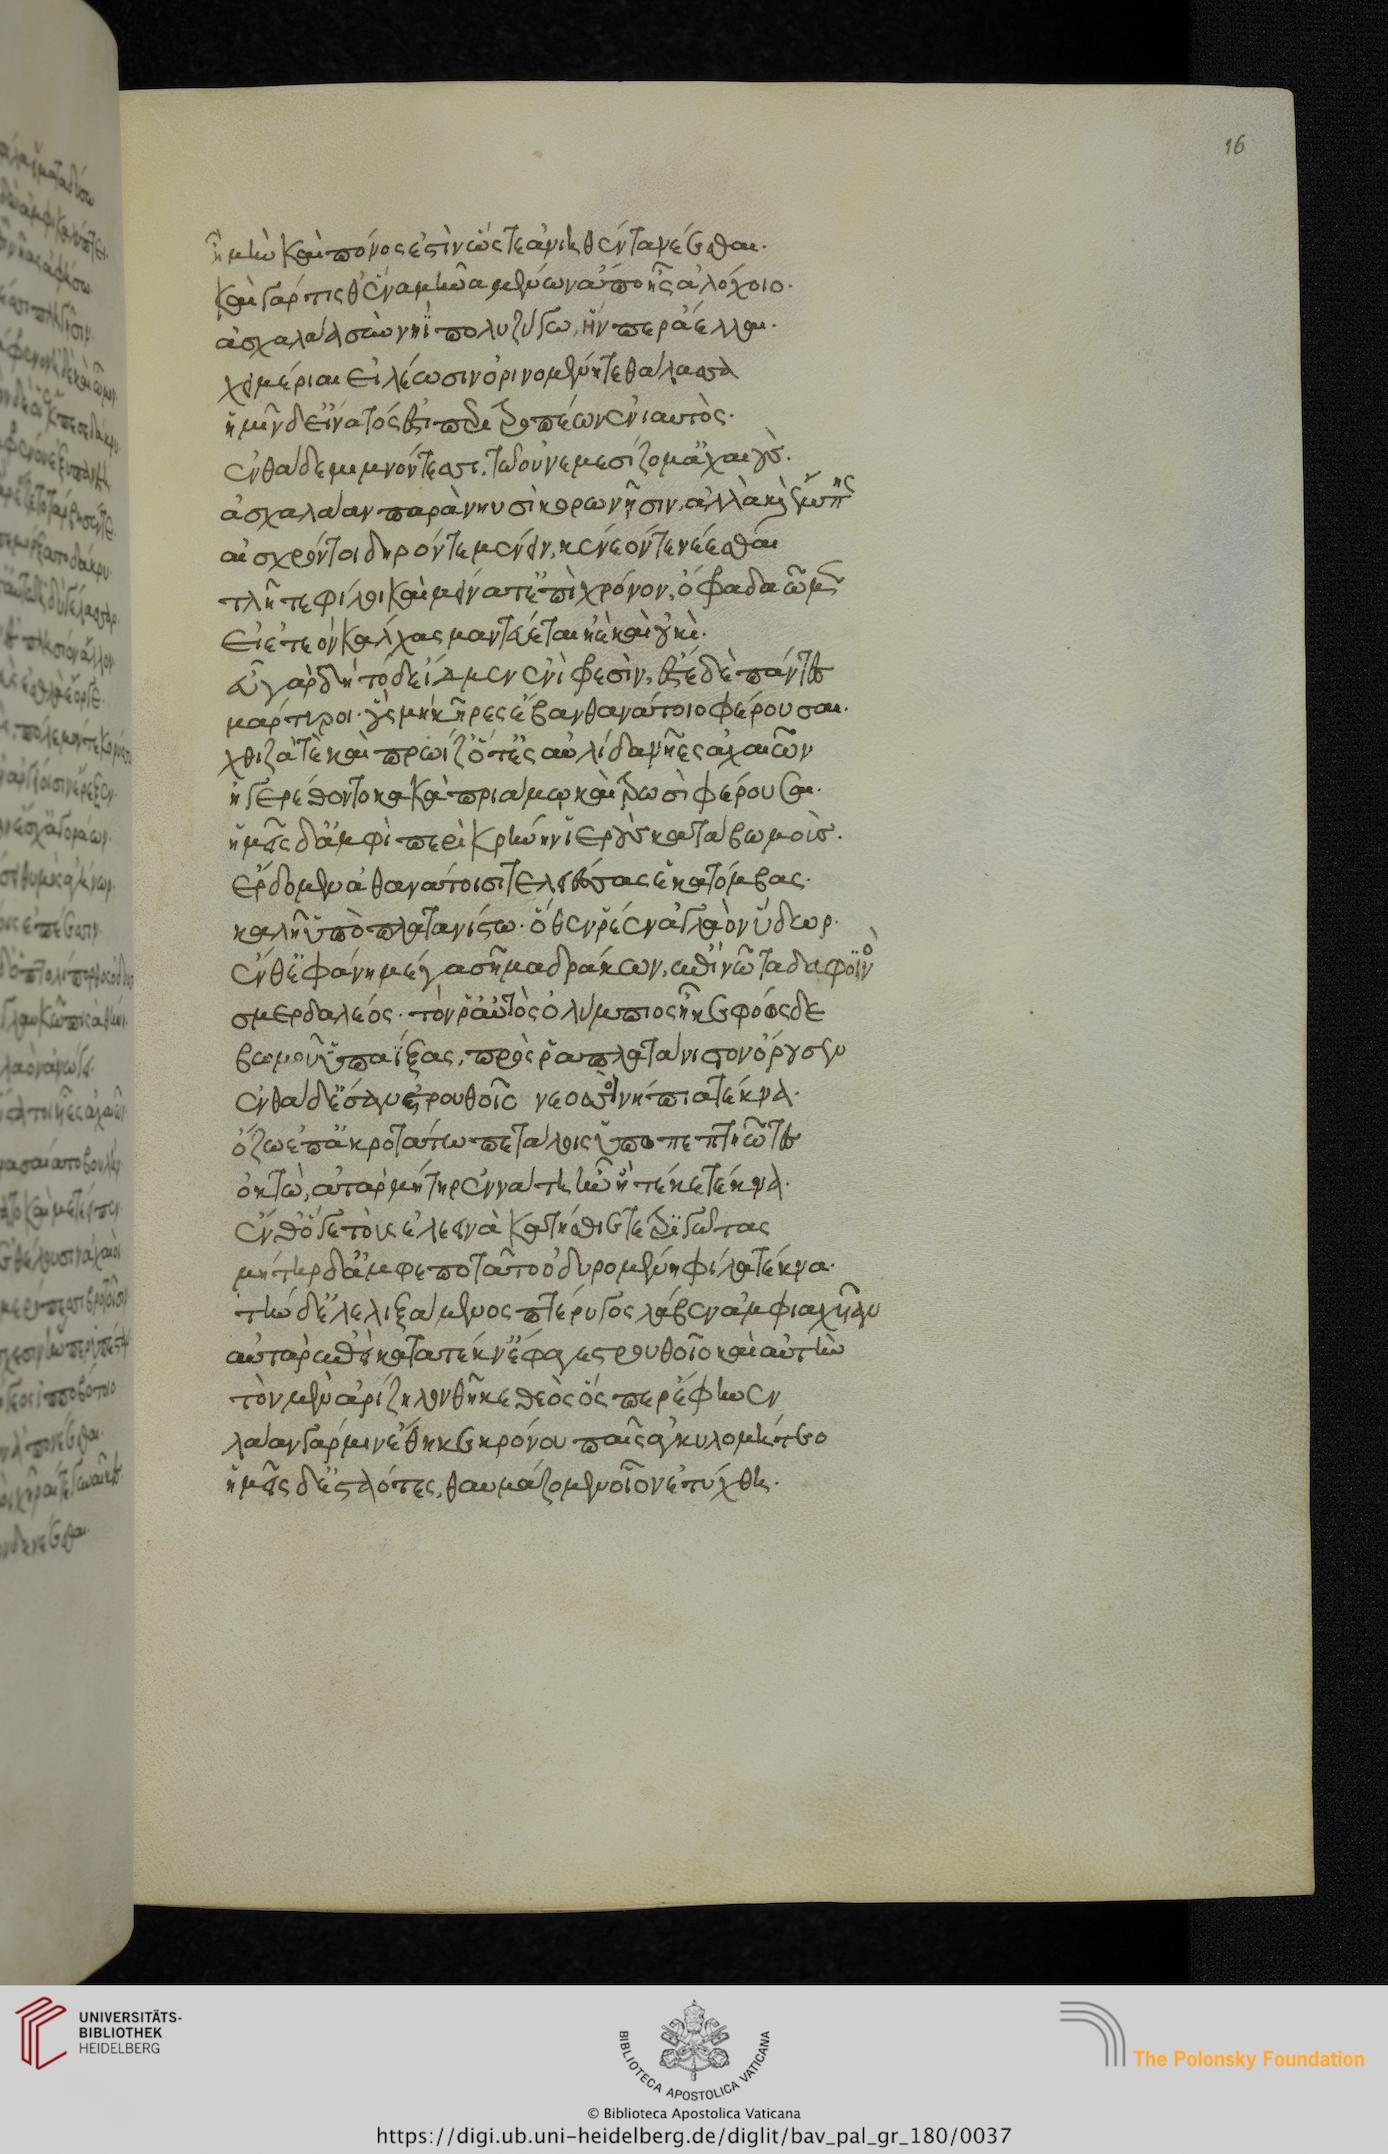 16
ἦ μὴν καὶ πόνος ἐστὶν ὥς τε ἀνιηθέντα νέεσθαι.
καὶ γάρ τίς θ' ἕνα μῆνα μένων ἀπὸ ἧς ἀλόχοιο.
ἀσχαλάᾳ σὺν νηῒ πολυζύγω, ἥν περ ἄελλαι.
χειμέριαι εἰλέωσιν ὀρινομένη τε θάλασσα
ἡμῖν δ' εἴνατός ἐστι περιτροπέων ἐνιαυτὸς.
ἐνθάδε μιμνόντεσσι. τῶ οὐ νεμεσίζομ' ἀχαιοὺς.
ἀσχαλάαν παρὰ νηυσὶ κορωνῆσιν, ἀλλὰ καὶ ἔμπης
αἰσχρόν τοι δηρόν τε μένειν, κενεόν τε νέεσθαι
τλῆτε φίλοι καὶ μείνατ' ἐπὶ χρόνον, ὄφρα δαῶμεν
εἰ ἐτεὸν κάλχας μαντεύεται ἠὲ καὶ οὐκὶ.
εὖ γὰρ δὴ τόδε ἴδμεν ἐνὶ φρεσὶν, ἐστὲ δὲ πάντες
μάρτυροι. οὓς μὴ κῆρες ἔβαν θανάτοιο φέρουσαι.
χθιζά τε καὶ πρωίζ' ὅτ' ἐς αὐλίδα νῆες ἀχαιῶν
ἠγερέθοντο κακὰ πριάμω καὶ τρωσὶ φέρουσαι.
ἡμεῖς δ' ἀμφὶ περὶ κρήνην ἱεροὺς κατὰ βωμοὺς.
ἔρδομεν ἀθανάτοισι τεληέσσας ἑκατόμβας.
καλῆ ὑπὸ πλατανίστω. ὅθεν ῥέεν ἀγλαὸν ὕδωρ.
ἔνθ' ἐφάνη μέγα σῆμα δράκων, ἐπὶ νῶτα δαφοινὸς
σμερδαλέος. τόν ῥ' αὐτὸς ὀλύμπιος ἧκε φόωσδε
βωμοῦ ὑπαΐξας, πρός ῥα πλατάνιστον ὄρουσεν
ἔνθα δ' ἔσαν στρουθοῖο νεοσσοὶ νήπια τέκνα.
ὄζω ἐπ' ἀκροτάτω πετάλοις ὑποπεπτηῶτες
ὀκτὼ, ἀτὰρ μήτηρ ἐννάτη ἦν ἣ τέκε τέκνα.
ἔνθ' ὅγε τοὺς ἐλεεινὰ κατήσθιε τετριγῶτας
μήτηρ δ' ἀμφεποτᾶτο ὀδυρομένη φίλα τέκνα.
τὴν δ' ἐλελιξάμενος πτέρυγος λάβεν ἀμφιαχυῖαν
αὐτὰρ ἐπεὶ κατὰ τέκν' ἔφαγε στρουθοῖο καὶ αὐτὴν
τὸν μὲν ἀρίζηλον θῆκε θεὸς ὅς περ ἔφηνεν
λᾶαν γάρ μιν ἔθηκε κρόνου παῖς ἀγκυλομήτεω
ἡμεῖς δ' ἑσταότες, θαυμάζομεν οἷον ἐτύχθη.
UNIVERSITÄTS-
BIBLIOTHEK
HEIDELBERG
BIBLIOTECA APOSTOLICA VATICANA
The Polonsky Foundation
© Biblioteca Apostolica Vaticana
https://digi.ub.uni-heidelberg.de/diglit/bav_pal_gr_180/0037